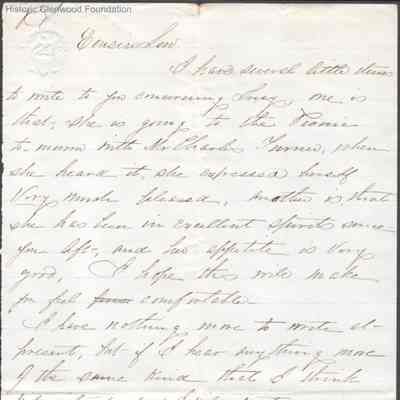 Historic Glenwood Foundation
Cousin Lou.
I have several little items
to write to you concerning Lucy, one is
that, she is going to the Picnic
to morrow with Mr Charles Turner, when
she heard it, she expressed herself
very much pleased, another is that
she has been in excellent spirits since
you left, and her appetite is very
good, I hope this will make
you feel comfortable.
I have nothing more to write at
present, but if I hear anything more
of the same kind that I think